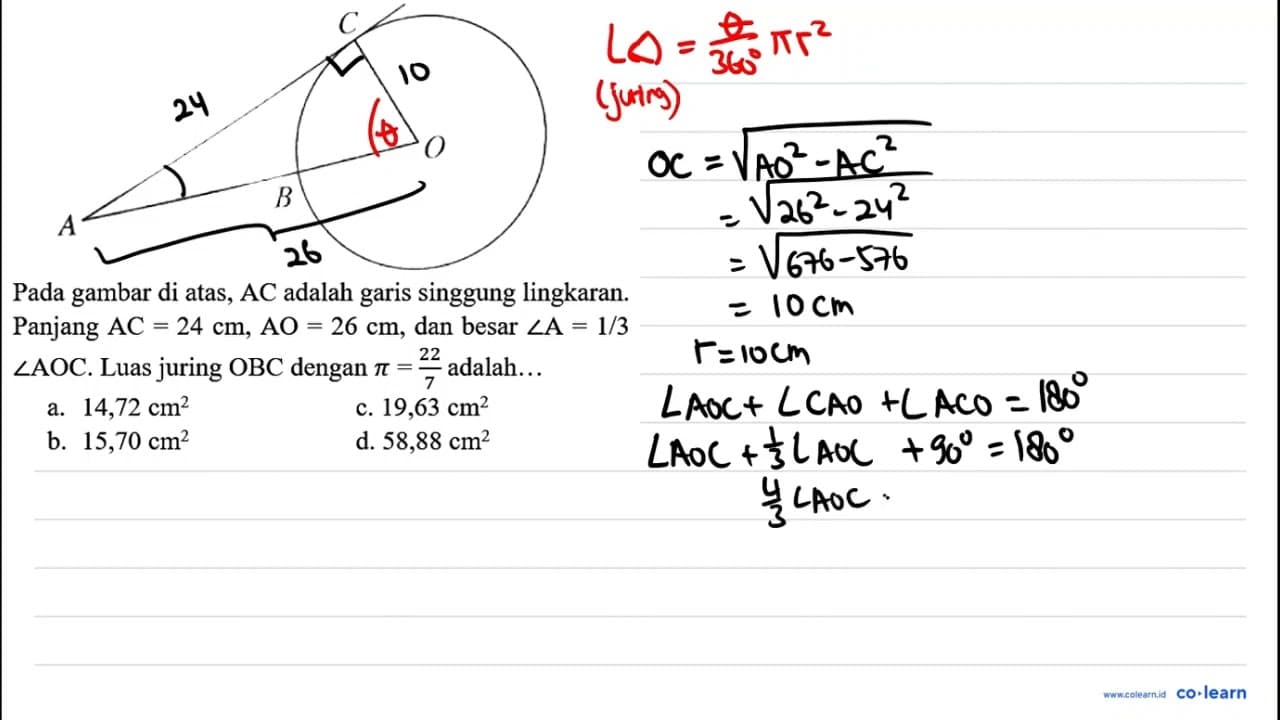 C
24
10
θ
O
B
A
26
Pada gambar di atas, AC adalah garis singgung lingkaran.
Panjang AC = 24 cm, AO = 26 cm, dan besar ∠A = 1/3
∠AOC. Luas juring OBC dengan π = 22/7 adalah…
a. 14,72 cm²
c. 19,63 cm²
b. 15,70 cm²
d. 58,88 cm²
L△ = θ/360° πr²
(juring)
OC = √AO² - AC²
= √26² - 24²
= √676 - 576
= 10 cm
r = 10 cm
∠AOC + ∠CAO + ∠ACO = 180°
∠AOC + 1/3 ∠AOC + 90° = 180°
4/3 ∠AOC ·
www.colearn.id co·learn